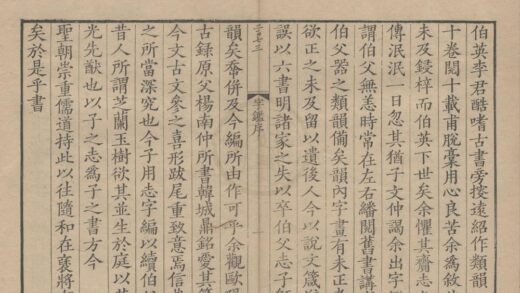 伯英李君酷嗜古書旁搜遠紹作類韻
十卷閱十載甫脫稾用心良苦余為敘
未及鋟梓而伯英下世矣余懼其齎志
傳泯泯一日忽其猶子文仲謁余出字
謂伯父無恙時常在左右繙閱舊書講
伯父器之類韻備矣韻內字畫有未正
欲正之未及留以遺後人今以說文箴
誤以六書明諸家之失以卒伯父志子
字鑑序
韻矣併及今編所由作可乎余觀歐
古録原父楊南仲所書韓城鼎銘愛其
今文古文參之喜形跋尾重致意焉信
之所當深究也今子用志字編以續伯
昔人所謂芝蘭玉樹欲其並生於庭以
光先猷也以子之志為子之書方今
聖朝崇重儒道持此以往隨和在褎將
矣於是乎書